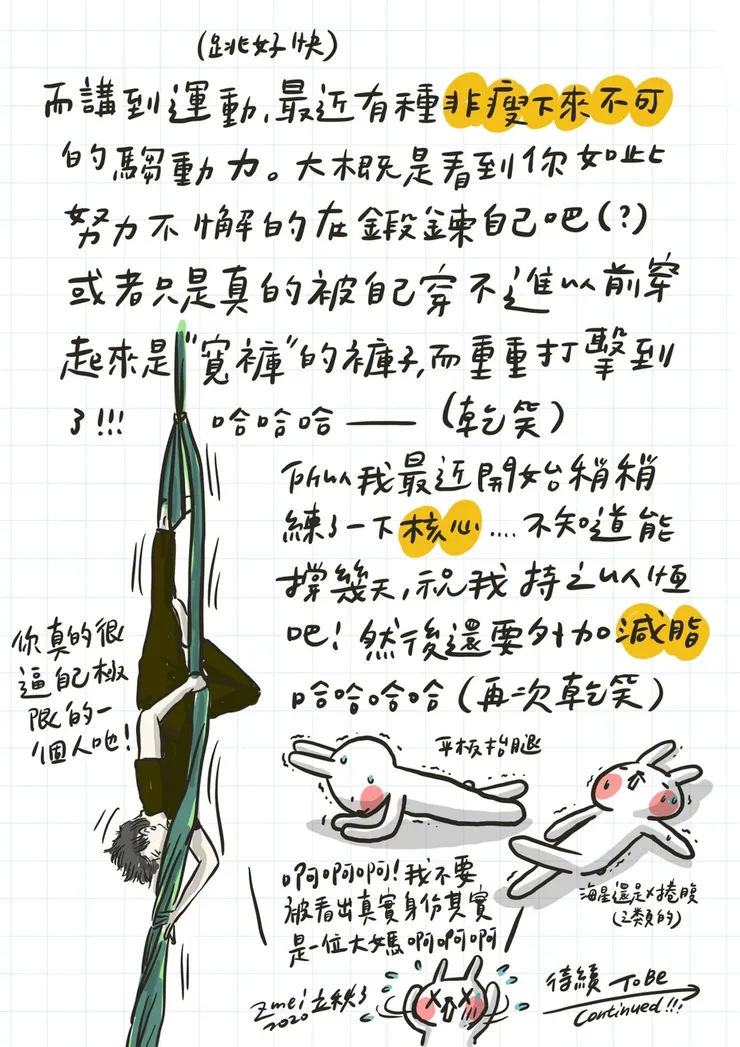 (跳好快)
而講到運動,最近有種非瘦下來不可
的騶動力。大概是看到你如此
努力不懈的在鍛鍊自己吧(?)
或者只是真的被自己穿不進以前穿
起來是"寬褲"的褲子,而重重打擊到
了!!! 哈哈哈——(乾笑)
所以我最近開始稍稍
練了一下核心....不知道能
撐幾天,祝我持之以恆
吧!然後還要外加減脂
哈哈哈哈(再次乾笑)
你真的很
逼自己極
限的一
個人吔!
平板抬腿
海星還是X捲腹
(之類的)
啊啊啊!我不要
被看出真實身份其實
是一位大媽啊啊啊
Zmei立秋了
2020
待續 To Be
Continued!!!